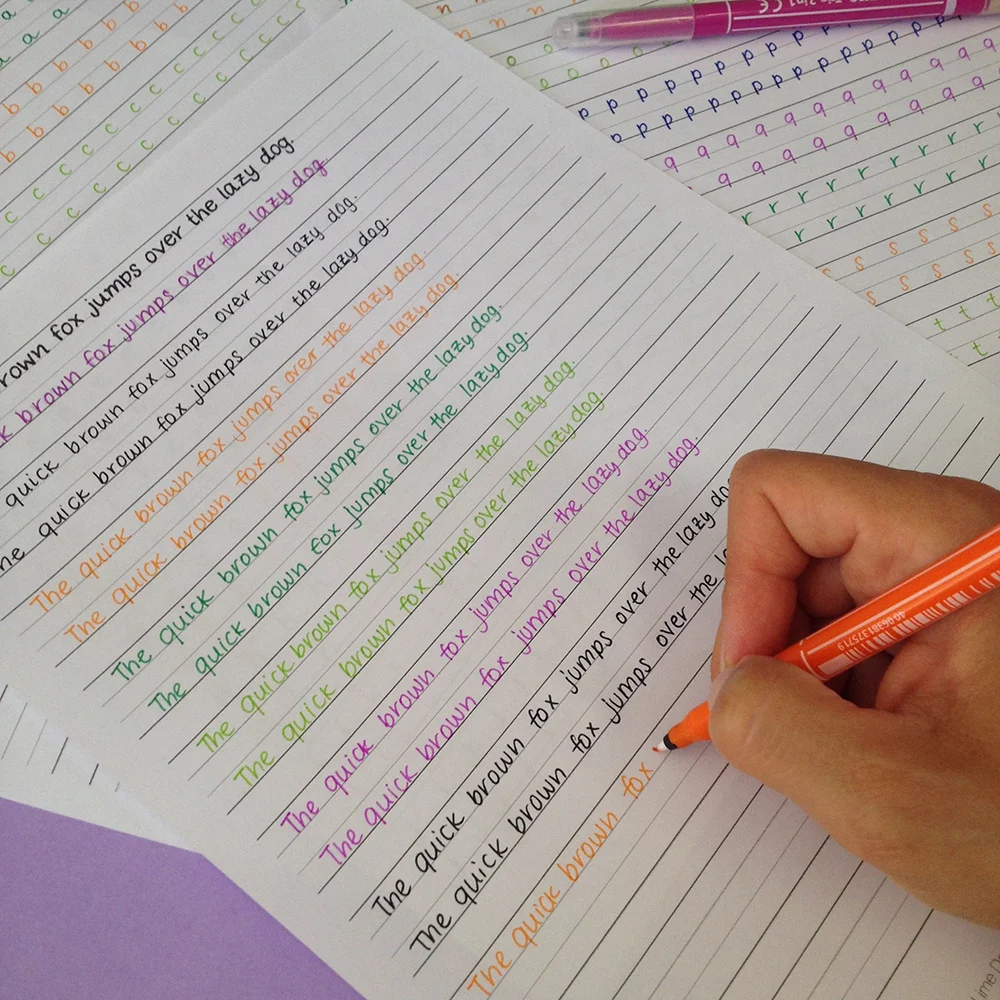 a
a
b b b b b
b b b b
c c c c c c
c c c c c c
n n n
o o o o o
p p p p p p p p p p p p
p p p p p p p p p p p p
q q q q q q q q q q q q
q q q q q q q q q
r r r r r r r r r
r r r r r r r
s s s s s s
s s s s s
t t t
t t
rown fox jumps over the lazy dog
k brown fox jumps over the lazy dog
quick brown fox jumps over the lazy dog.
he quick brown fox jumps over the lazy dog.
The quick brown fox jumps over the lazy dog.
The quick brown fox jumps over the lazy dog.
The quick brown fox jumps over the lazy dog.
The quick brown fox jumps over the lazy dog.
The quick brown fox jumps over the lazy dog.
The quick brown fox jumps over the lazy dog.
The quick brown fox jumps over the lazy dog.
The quick brown fox jumps over the lazy dog.
The quick brown fox jumps over the lazy do
The quick brown fox jumps over the l
The quick brown fox
4006381375719